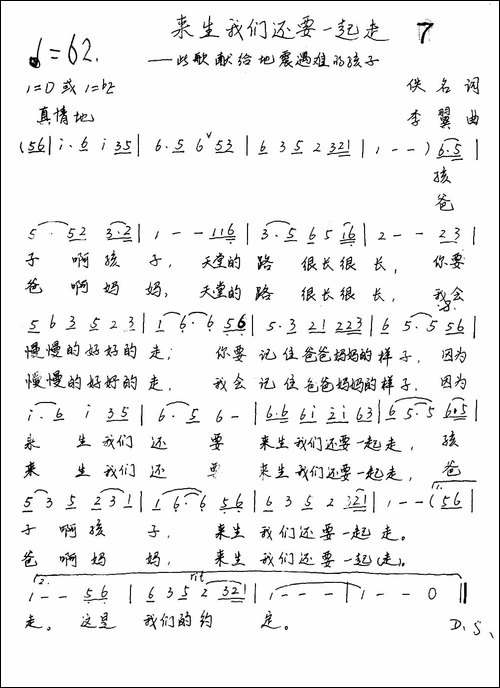 来生我们还要一起走 7
♩=62.
——此歌献给地震遇难的孩子
1=D 或 1=b2 佚名 词
真情地 李翼 曲
(56 | i·6 i 35 | 6·5 6ᵛ 53 | 6 3 5 2 321 | 1 - - ) 6·5 |
孩
爸
5· 52 3·2 | 1 - - 116 | 3·5 6 5 16 | 2 - - 23 |
子 啊 孩 子, 天堂的 路 很长很 长, 你要
爸 啊 妈 妈, 天堂的 路 很长很 长, 我会
5 6 3 5 2 3 | 1 6·6 56 | 5·3 21 223 | 6 5·5 56 |
慢慢的好好的 走; 你要 记住爸爸妈妈的样子, 因为
慢慢的好好的 走, 我会 记住爸爸妈妈的样子, 因为
i·6 i 35 | 6·5 6 - | 6·6 6i 2i 63 | 6 5·5 6·5 |
来 生 我们 还 要 来生我们还要一起走, 孩
来 生 我们 还 要 来生我们还要一起走, 爸
1.
5 3 5 231 | 1 6·6 56 | 6 3 5 2 321 | 1 - - (56 |
子 啊 孩 子, 来生 我们还要一起 走。
爸 啊 妈 妈, 来生 我们还要一起(走)。
2. rit
1 - - 56 | 6 3 5 2 321 | 1 - - - | 1 - - 0 ‖
走。 这是 我们的约 定。 D.S.